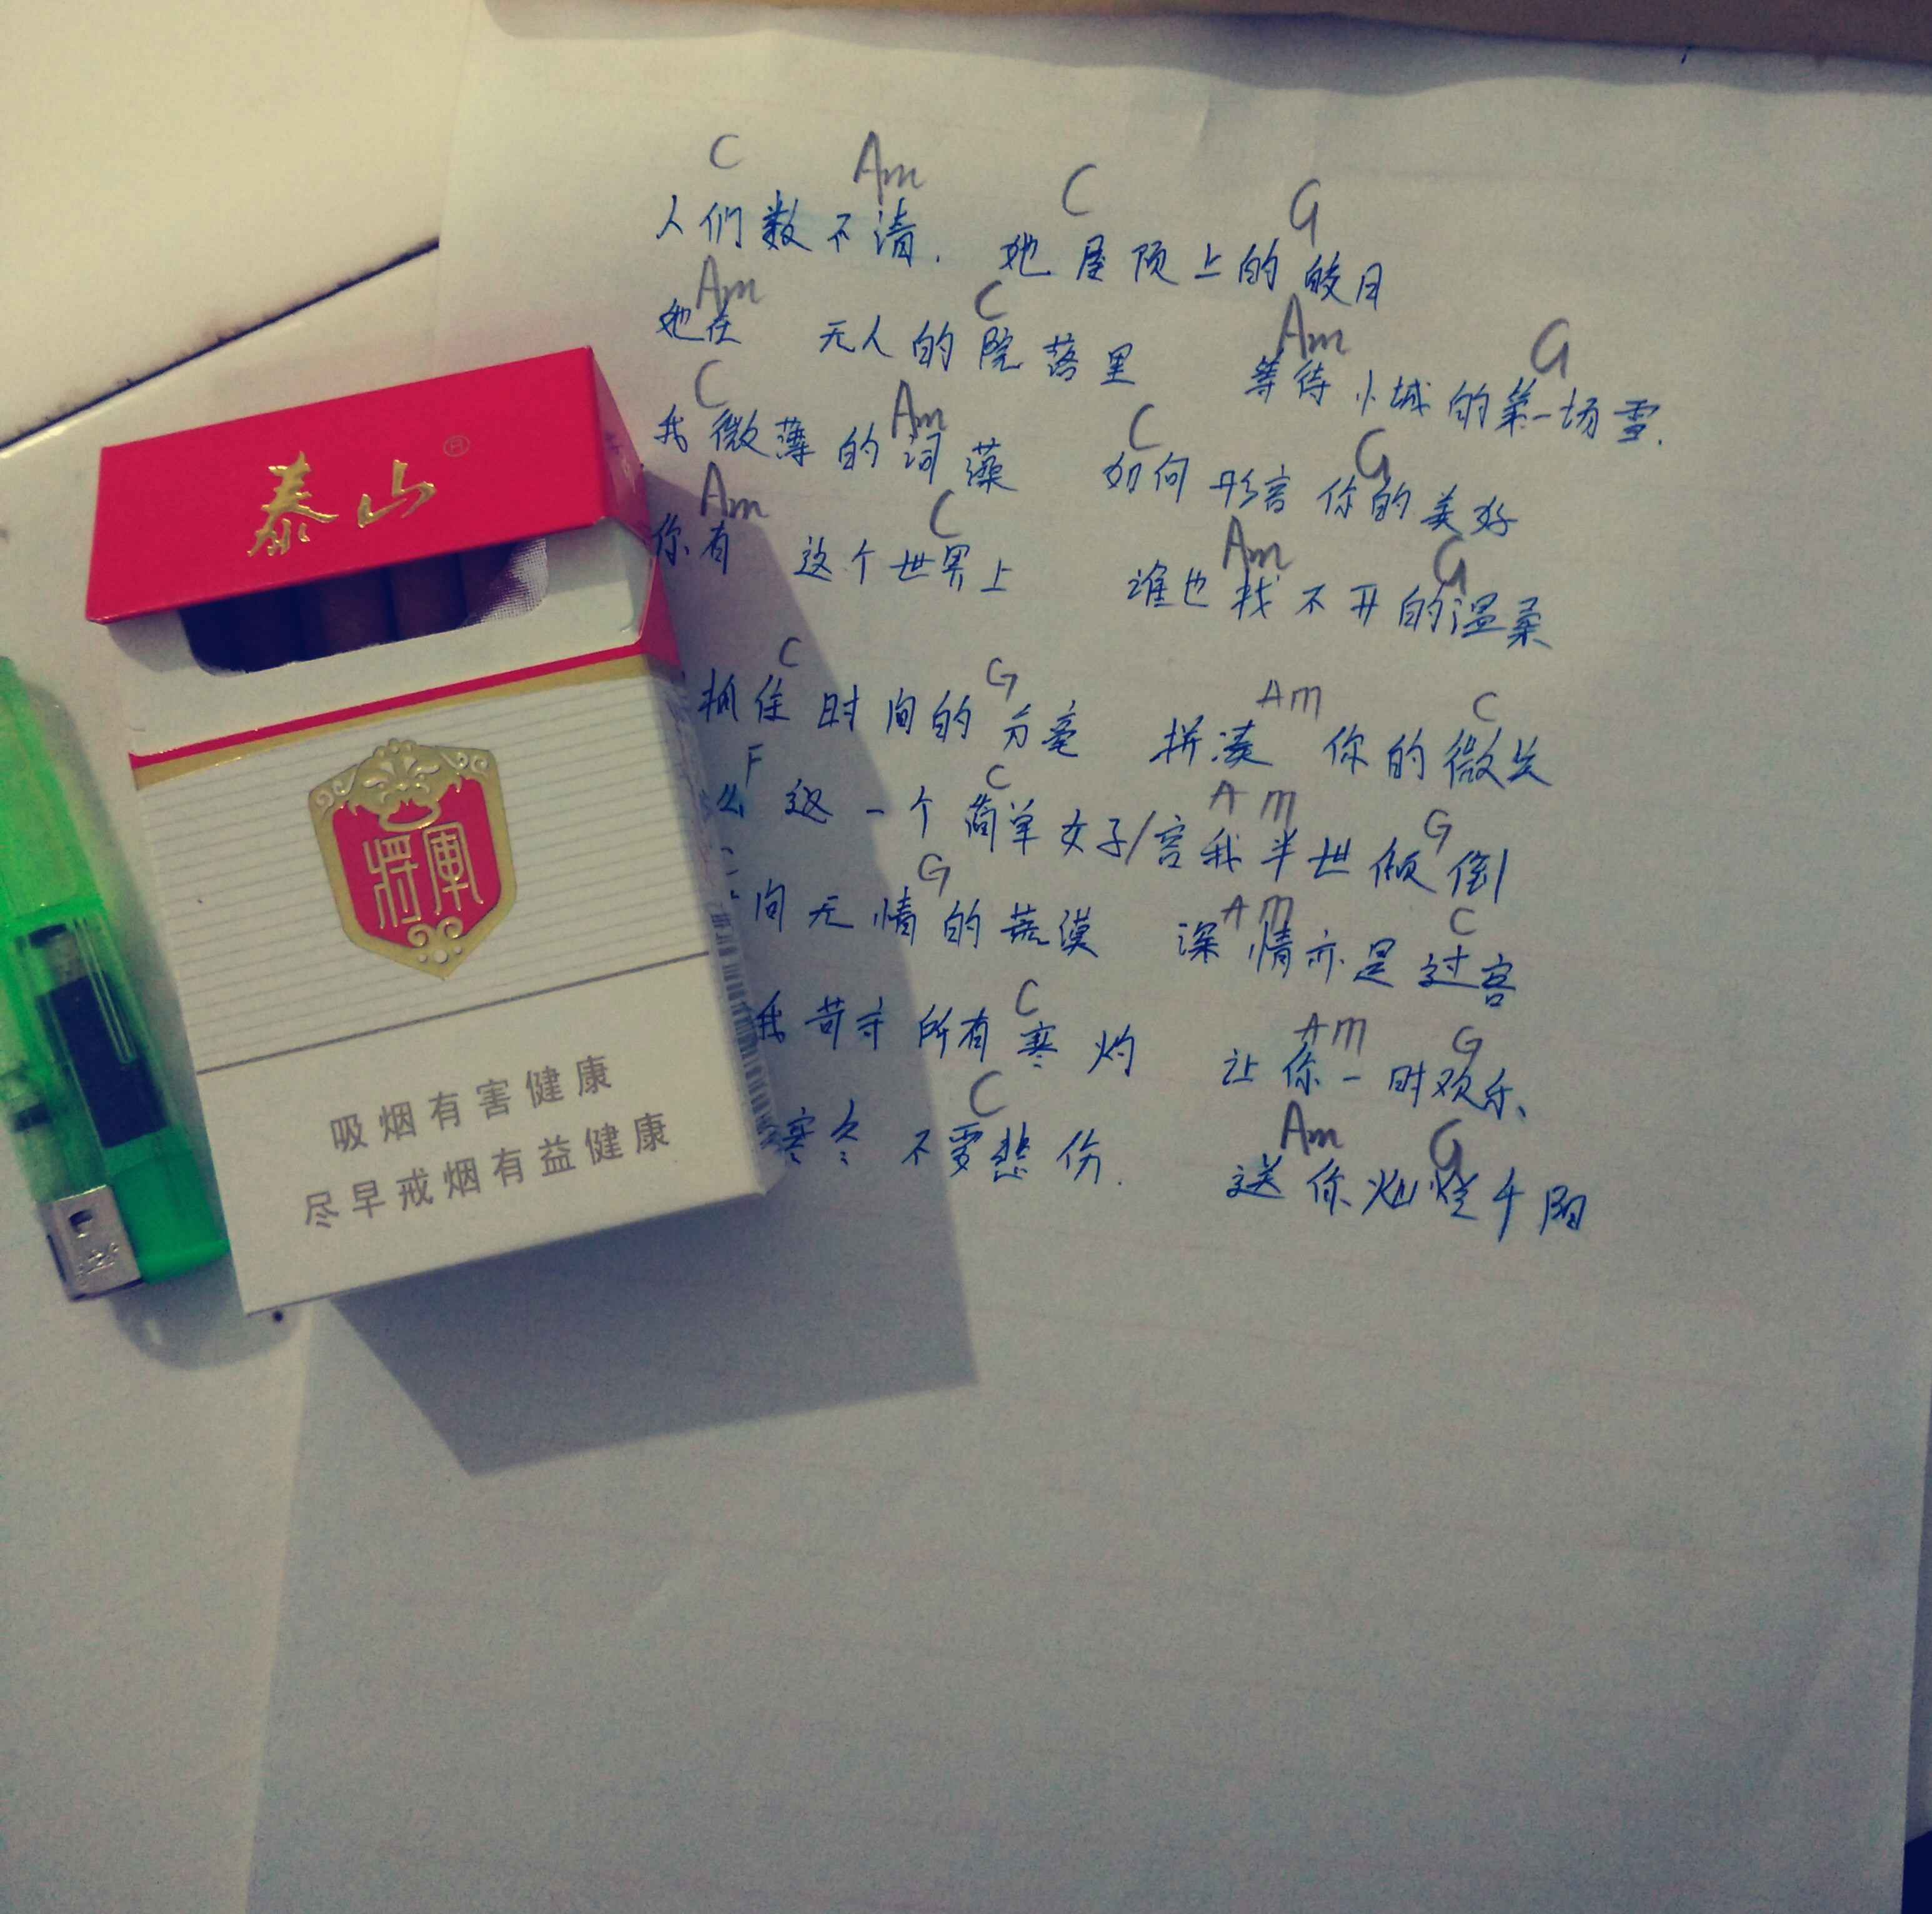 C Am C G
人们数不清. 她屋顶上的皎月
Am C Am G
她在 无人的院落里 等待小城的第一场雪.
C Am C G
我微薄的词藻 如何形容你的美好
Am C Am G
你有 这个世界上 谁也找不开的温柔
C G Am C
抓住时间的分毫 拼凑 你的微笑
F C Am G
么 这一个简单女子/害我半世倾倒
G Am C
间无情的荒漠 深情亦是过客
C Am G
我苛守所有寒灼 让你一时欢乐、
C Am G
寒冬 不要悲伤. 送你灿烂千阳
泰山®
将軍
吸烟有害健康
尽早戒烟有益健康